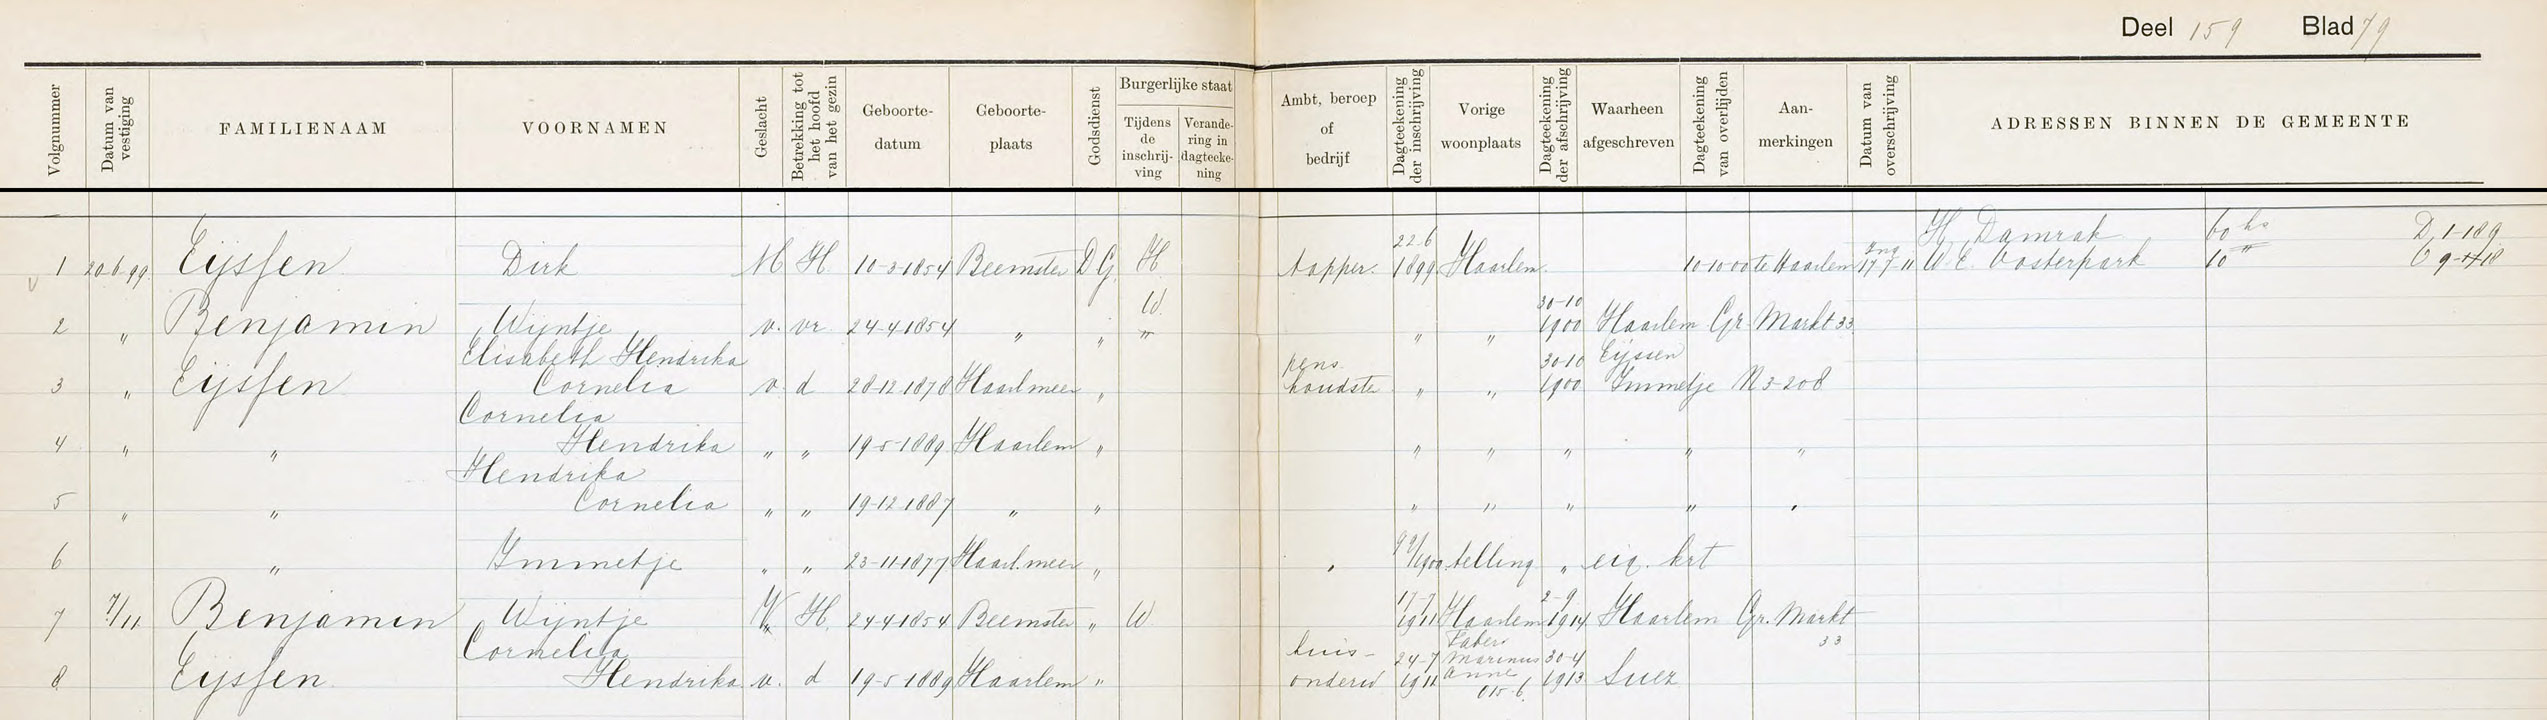 Deel 159 Blad 79
Volgnummer
Datum van vestiging
FAMILIENAAM
VOORNAMEN
Geslacht
Betrekking tot het hoofd van het gezin
Geboorte-datum
Geboorte-plaats
Godsdienst
Burgerlijke staat
Tijdens de inschrij-ving
Verande-ring in dagteeke-ning
Ambt, beroep of bedrijf
Dagteekening der inschrijving
Vorige woonplaats
Dagteekening der afschrijving
Waarheen afgeschreven
Dagteekening van overlijden
Aan-merkingen
Datum van overschrijving
ADRESSEN BINNEN DE GEMEENTE
H Damrak 60 hs D 1-189
1 20.6.99 Eijssen Dirk M H 10-3-1854 Beemster D G H tapper. 22.6 1899 Haarlem 10-10-00 te Haarlem 17-7-11 W.E. Oosterpark 10
2 " Benjamin Wijntje v. vr 24-4-1854 " " W " " " 30-10 1900 Haarlem Gr Markt 33
3 " Eijssen Elisabeth Hendrika Cornelia v. d 28-12-1878 Haarl.meer " pens. houdster " " 30-10 1900 Eijssen Immetje N3-208
4 " " Cornelia Hendrika " " 19-5-1889 Haarlem " " " " " "
5 " " Hendrika Cornelia " " 19-12-1887 " " " " " " "
6 " Immetje " " 23-11-1877 Haarl.meer " " telling " eig. krt
7 7/11 Benjamin Wijntje V H. 24-4-1854 Beemster " W 17-7 1911 Haarlem 2-9 1914 Haarlem Gr. Markt 33
8 Eijssen Cornelia Hendrika v. d 19-5-1889 Haarlem " huis-onderw 24-7 1911 Marinus Anne 30-4 1913 Suez